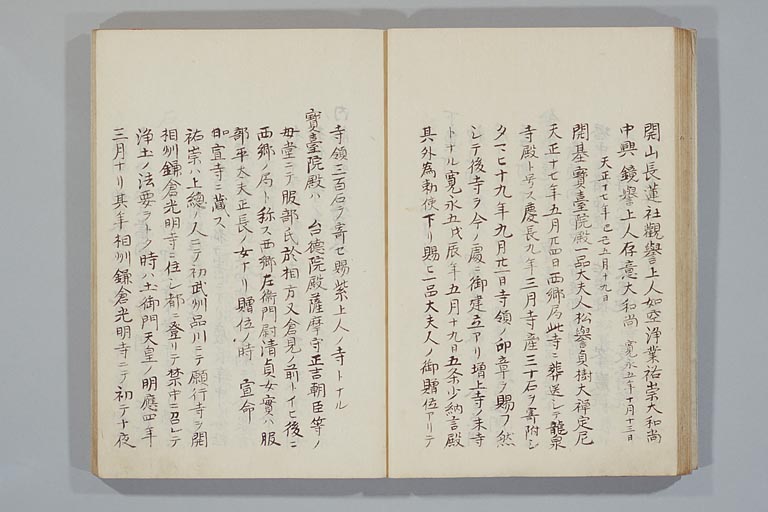 開山長蓮社觀譽上人如空浄業祐崇大和尚
天正十七年己丑五月十九日
中興鏡譽上人存意大和尚 寛永五年十月十三日
開基寶臺院殿一品大夫人松譽貞樹大禅定尼
天正十七年五月廿四日西郷局此寺ニ葬送シテ龍泉
寺殿ト号ス慶長九年三月寺産三十石ヲ寄附シ
タマヒ十九年九月廿一日寺領ノ御章ヲ賜フ然
シテ後寺ヲ今ノ處ニ御建立アリ増上寺ノ末寺
トナル寛永五戊辰年五月十九日五条少納言殿
其外為勅使下リ賜ヒ一品大夫人ノ御贈位アリテ
寺領三百石ヲ寄セ賜紫上人ノ寺トナル
寶臺院殿ハ 台德院殿薩摩守正吉朝臣等ノ
母堂ニテ服部氏於相方又倉見ノ前トイヒ後ニ
西郷ノ局ト称ス西郷左衛門尉清貞女實ハ服
部平太夫正長ノ女ナリ贈位ノ時 宣命
即當寺ニ蔵ス
祐崇ハ上總ノ人ニテ初武州品川ニテ願行寺ヲ開
相州鎌倉光明寺ニ住シ都ニ登リテ禁中ニ召レテ
浄土ノ法要ヲトク時ハ土御門天皇ノ明應四年
三月ナリ其年相州鎌倉光明寺ニテ初テ十夜